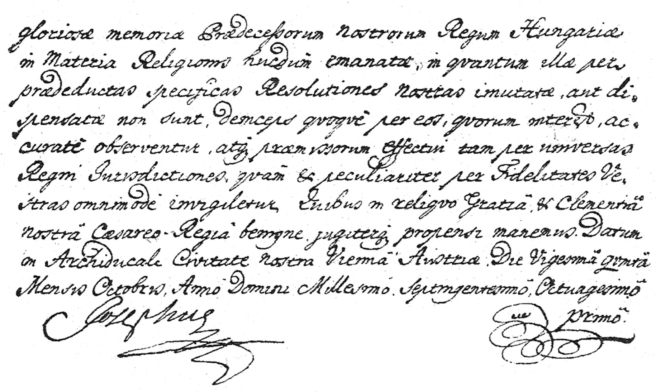 gloriosæ memoriæ Prædecessorum nostrorum Regum Hungariæ
in Materia Religionis hucdum emanatæ, in quantum illæ per
prædeductas specificas Resolutiones nostras imutatæ, aut di-
spensatæ non sunt, deinceps quoque per eos, quorum interest, ac-
curatè observentur, atq præmissorum effectui tam per universas
Regni Jurisdictiones, quam & peculiariter per Fidelitates Ve-
stras omnimodè invigiletur. Quibus in reliquo Gratiâ, & Clementiâ
nostrâ Cæsareo-Regiâ benigne jugiterq propensi manemus. Datum
in Archiducali Civitate nostra Vienna Austriæ. Die Vigesimâ quintâ
Mensis Octobris, Anno Domini Millesimô. Septingentesimô, Octuagesimô
Josephus primô.